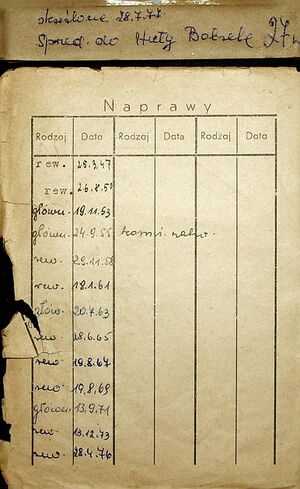 skreślono 28.7.77
Sprzed. do Huty
Naprawy
Rodzaj Data Rodzaj Data Rodzaj Data
rew. 25.3.47
rew. 26.8.50
główn. 19.11.53
główn. 24.9.55
rew. 29.11.58
rew. 18.1.61
główn. 20.7.63
rew. 28.6.65
rew. 19.8.67
rew. 19.8.69
główn. 13.9.71
rew. 13.12.73
rew. 28.4.76